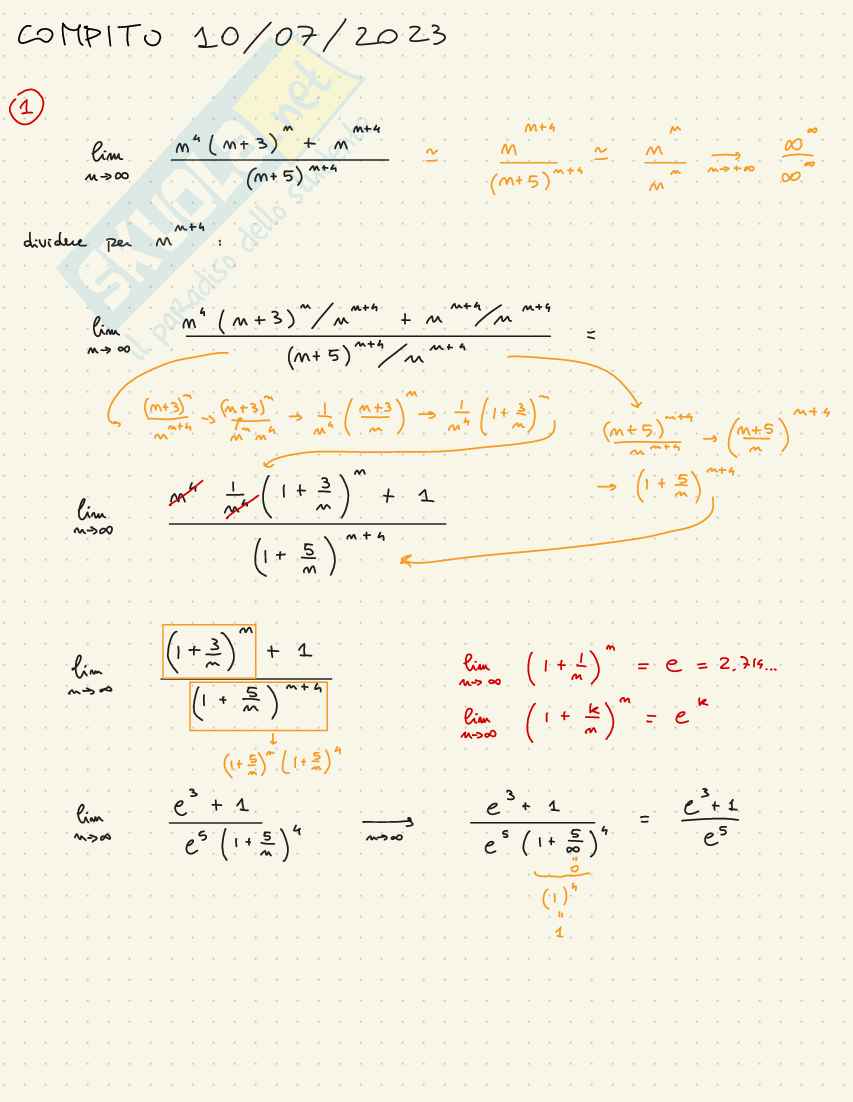 COMPITO 10/07/2023
1
lim n→∞ (n⁴(n+3)ⁿ + nⁿ⁺⁴)/(n+5)ⁿ⁺⁴ ≃ nⁿ⁺⁴/(n+5)ⁿ⁺⁴ ≃ nⁿ/nⁿ →(n→+∞) ∞^∞/∞^∞
dividere per nⁿ⁺⁴ :
lim n→∞ (n⁴(n+3)ⁿ/nⁿ⁺⁴ + nⁿ⁺⁴/nⁿ⁺⁴)/((n+5)ⁿ⁺⁴/nⁿ⁺⁴) =
(n+3)ⁿ/nⁿ⁺⁴ → (n+3)ⁿ/(nⁿ n⁴) → 1/n⁴ ((n+3)/n)ⁿ → 1/n⁴ (1 + 3/n)ⁿ
(n+5)ⁿ⁺⁴/nⁿ⁺⁴ → ((n+5)/n)ⁿ⁺⁴
→ (1 + 5/n)ⁿ⁺⁴
lim n→∞ (n⁴ 1/n⁴ (1 + 3/n)ⁿ + 1)/(1 + 5/n)ⁿ⁺⁴
lim n→∞ ((1 + 3/n)ⁿ + 1)/(1 + 5/n)ⁿ⁺⁴
(1+5/n)ⁿ (1+5/n)⁴
lim n→∞ (1 + 1/n)ⁿ = e = 2,714...
lim n→∞ (1 + k/n)ⁿ = eᵏ
lim n→∞ (e³ + 1)/(e⁵ (1 + 5/n)⁴) →(n→∞) (e³ + 1)/(e⁵ (1 + 5/∞)⁴) = (e³+1)/e⁵
"
0
(1)⁴
"
1
SKUOLA.net
il paradiso dello studente